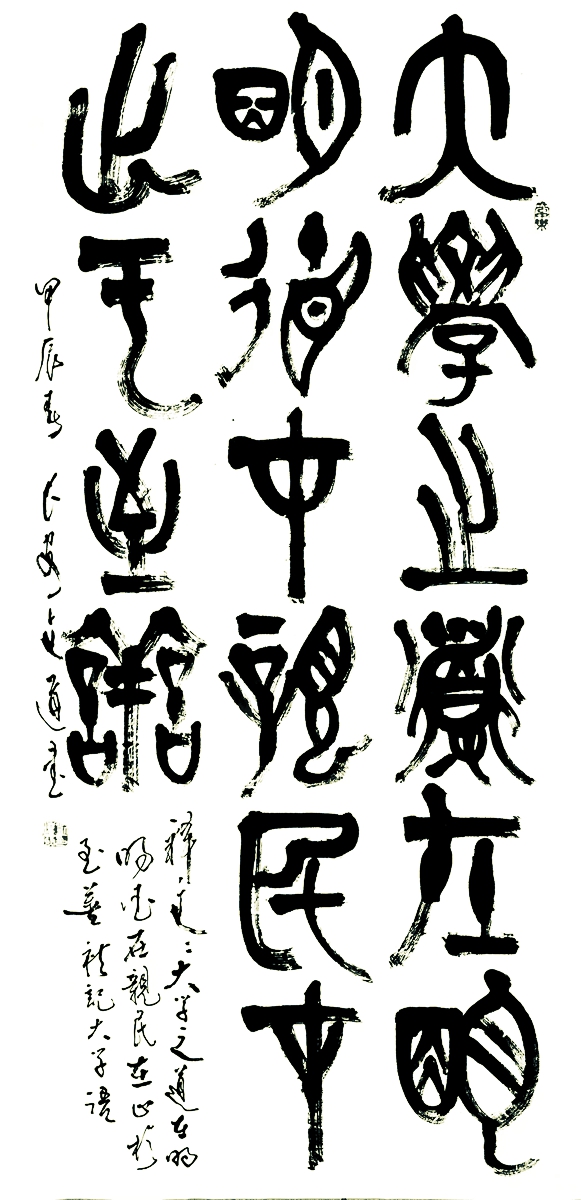 大學之道在明
明德在親民在
止于至善
釋文大学之道在明
明德在親民在止於
至善禮記大学語
甲辰春